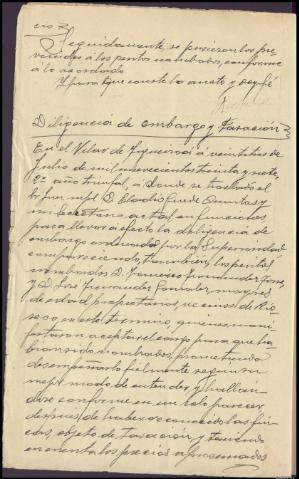 Seguidamente se pusieron los pre-
venidos á los peritos nombrados, conforme
á lo acordado
Y para que conste lo anoto y doy fé
Diligencia de embargo y Tasación
En el Vilar de Figueiroa á veintitres de
Julio de mil novecientos treinta y siete,
2º año triunfal, á donde se trasladó el
Sr. Juez mpl D. Claudio
mi Secretario actal en funciones
para llevar a efecto la diligencia de
embargo ordenada por la Superioridad
comparecieron tambien los peritos
nombrados D. Francisco Fernandez
y D. José Fernandez Gonzalez, mayores
de edad, propietarios, vecinos de Rio-
seco, en este término, quienes mani-
festaron aceptar el cargo para que ha-
bian sido nombrados, prometiendo
desempeñarlo fielmente segun su
mejor modo de entender y hallan-
dose conforme en un solo parecer
despues de haber reconocido las fin-
cas, objeto de tasación y teniendo
en cuenta los precios aproximados